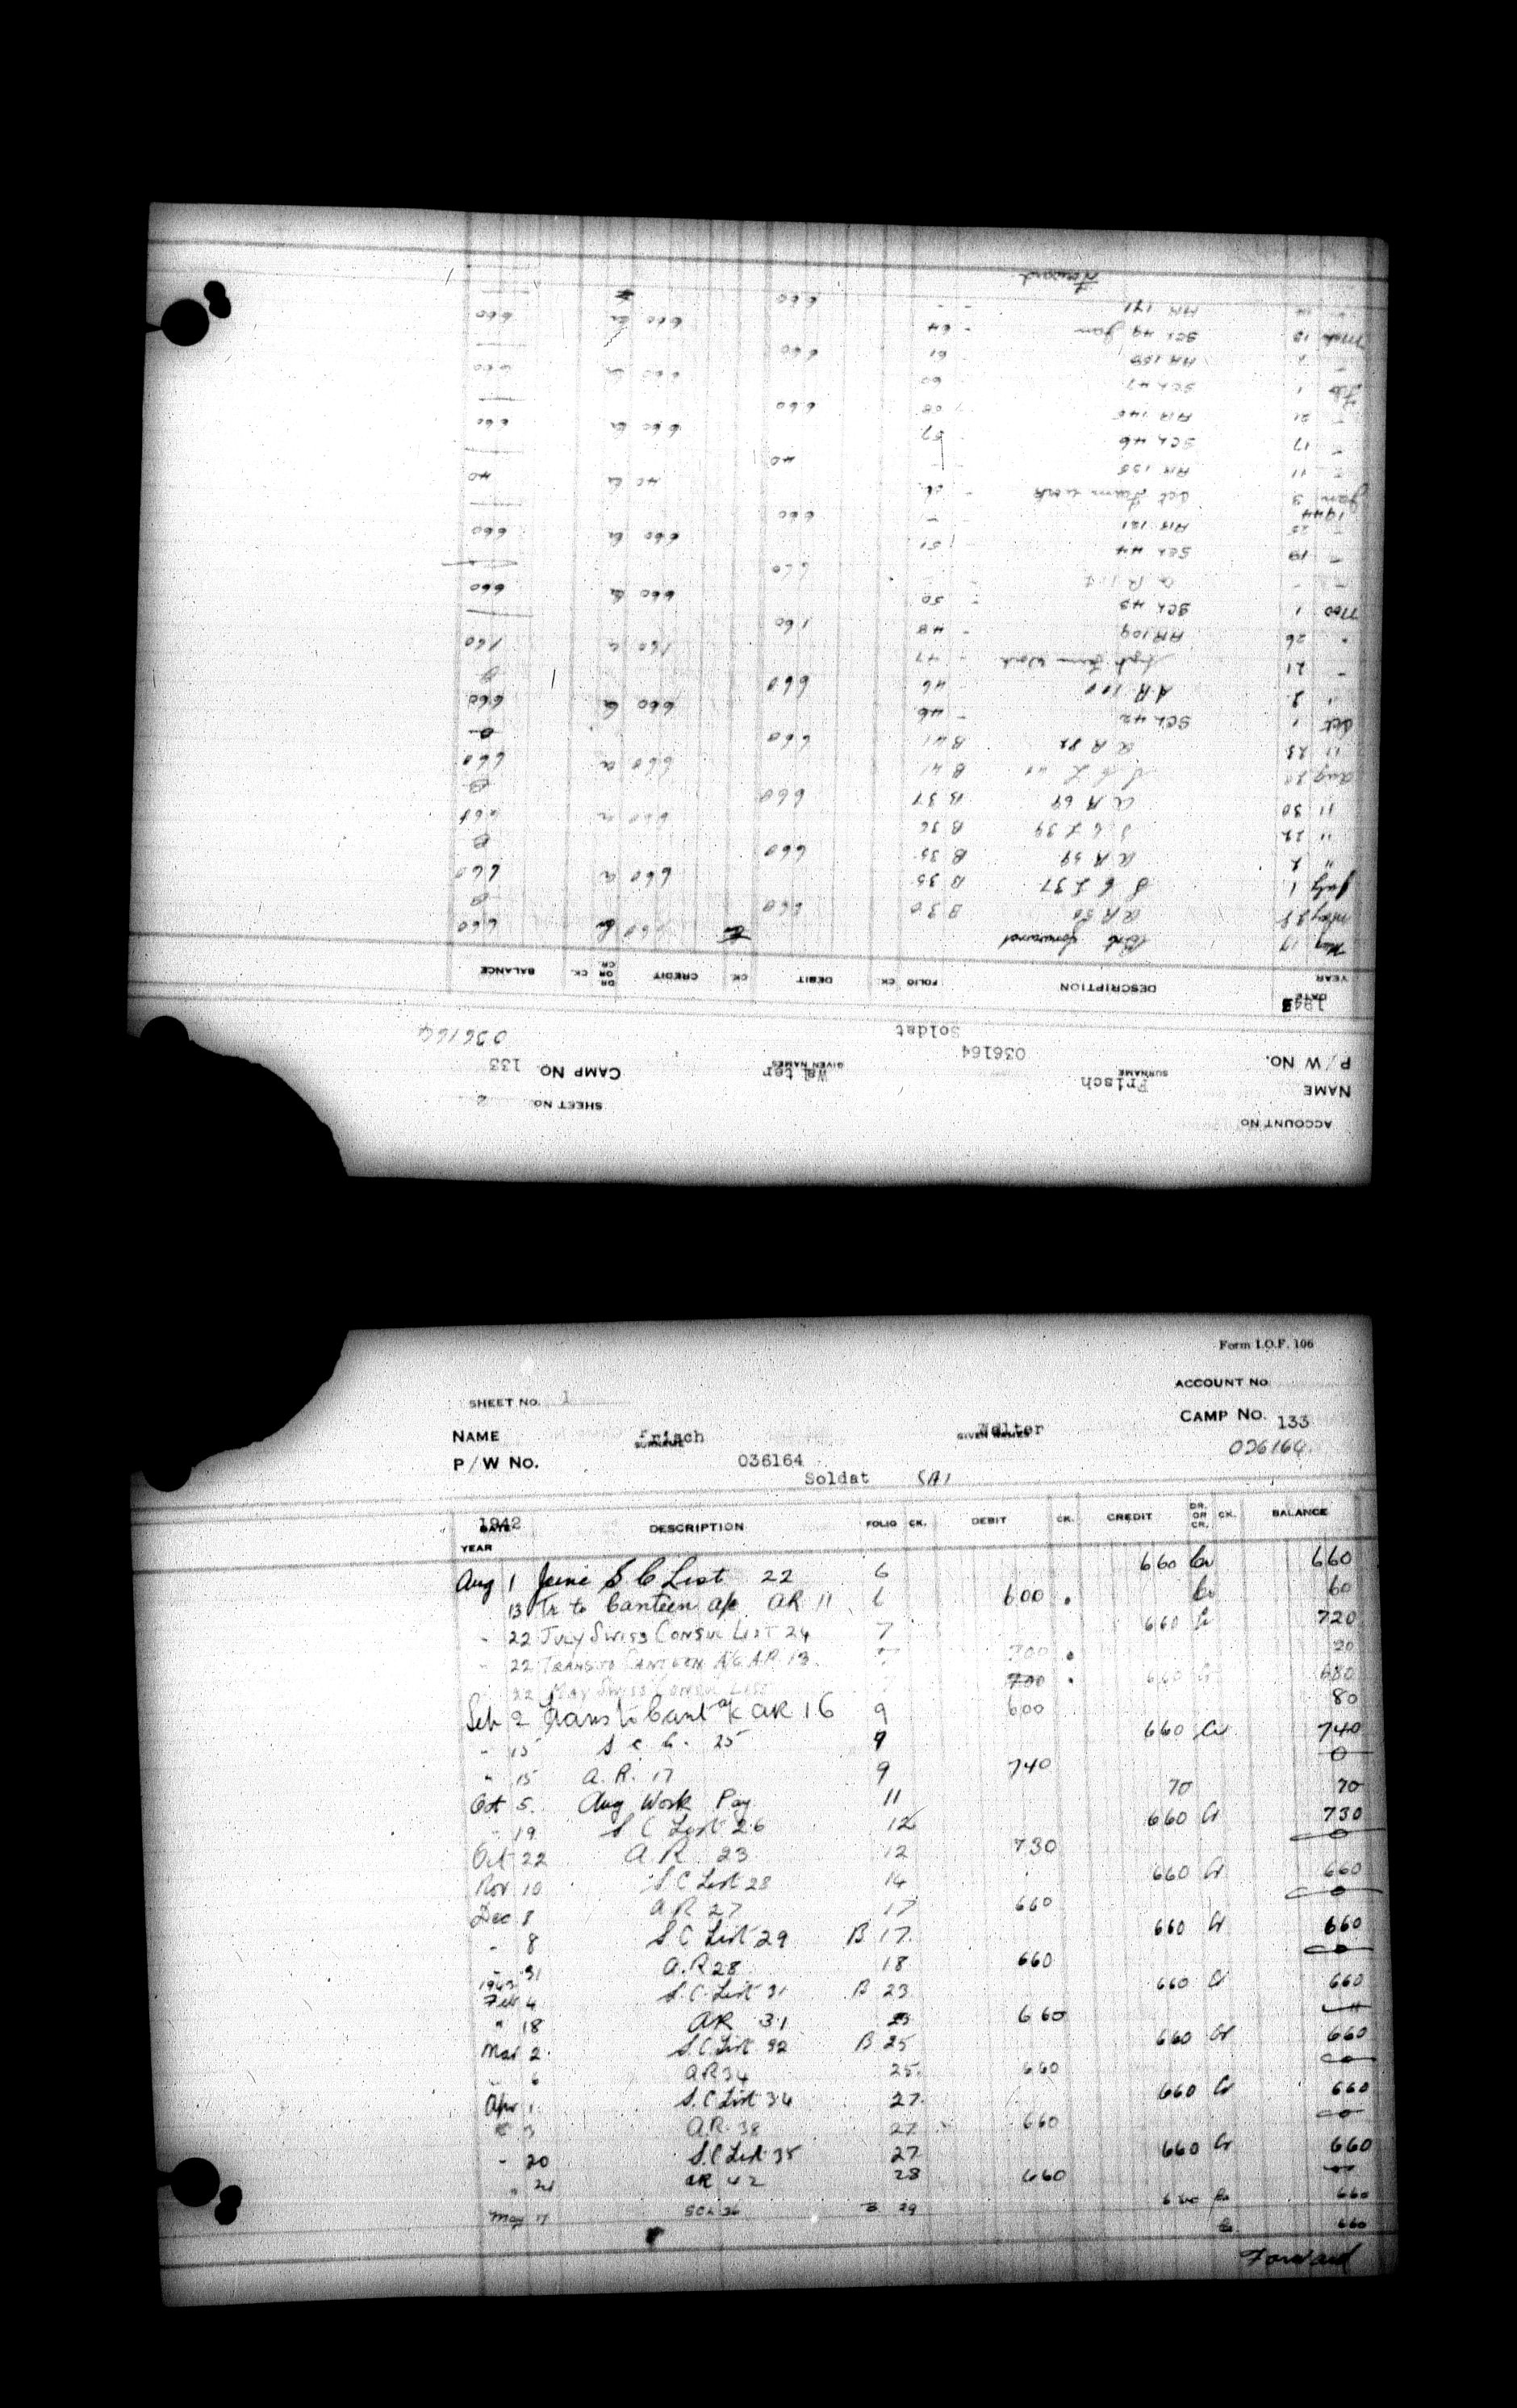 Form I.O.F. 106
SHEET NO. 1 ACCOUNT NO
NAME Frisch SURNAME Walter GIVEN NAMES CAMP NO. 133
P/W NO. 036164 036164
Soldat
1942
DATE YEAR DESCRIPTION FOLIO CK. DEBIT CK. CREDIT DR. OR CR. CK. BALANCE
Aug 1 June S C List 22 6 660 Cr 660
13 Tr to Canteen a/c AR 11 6 600 Cr 60
" 22 JULY SWISS CONSUL LIST 24 7 660 Cr 720
" 22 TRANS TO CANTEEN A/C A.R. 13. 7 700 20
" 22 MAY SWISS CONSUL LIST 7 700 660 Cr 680
Sep 2 Trans to Cant a/c AR 16 9 600 80
" 15 S C L. 25 9 660 Cr 740
" 15 A.R. 17 9 740 0
Oct 5. Aug Work Pay 11 70 70
" 19 S C List 26 12 660 Cr 730
Oct 22 A R 23 12 730 0
Nov 10 S C List 28 14 660 Cr 660
Dec 8 A R 27 17 660 0
" 8 S C List 29 B 17 660 Cr 660
" 31 A.R 28 18 660 0
1943
Feb 4 S.C. List 31 B 23 660 Cr 660
" 18 AR 31 23 660
Mar 2. S.C. List 32 B 25 660 Cr 660
" 6 AR 34 25. 660 0
Apr 1 S.C List 34 27 660 Cr 660
" 3 A.R. 38 27 660 0
" 20 S.C List 35 27 660 Cr 660
" 21 AR 42 28 660
May 17 SCL 36 B 29 660 Cr 660
Cr 660
Forward
ACCOUNT NO
SHEET NO. 2
NAME Frisch SURNAME Walter GIVEN NAMES CAMP NO. 133
P/W NO. 036164 036164
Soldat
1943
DATE YEAR DESCRIPTION FOLIO CK. DEBIT CK. CREDIT DR. OR CR. CK. BALANCE
May 17 Brt forward 660 Cr 660
May 28 AR 50 B 30 660 0
July 1 S C L 37 B 35 660 Cr 660
" 2 AR 59 B 35 660 0
" 22 S C L 39 B 36 660 Cr 660
" 30 AR 69 B 37 660 0
Aug 20 S C L B 41 660 Cr 660
" 23 AR 82 B 41 660 0
Oct 1 SCL 42 46 660 Cr 660
" 2 A.R. 100 46 660 0
" 21 Sept Farm Work 47 160 Cr 160
" 26 AR 109 48 160
Nov 1 SCL 43 50 660 Cr 660
A.R. 114 660
" 19 SCL 44 51 660 Cr 660
" 25 AR 121 660
1944
Jan 3 Oct Farm work 40 Cr 40
" 11 AR 135 40
" 17 SCL 46 57 660 Cr 660
" 21 AR 145 58 660
Feb 1 SCL 47 60 660 Cr 660
AR 150 61 660
Mch 13 SCL 49 Jan 64 660 Cr 660
AR 171 660
Forward